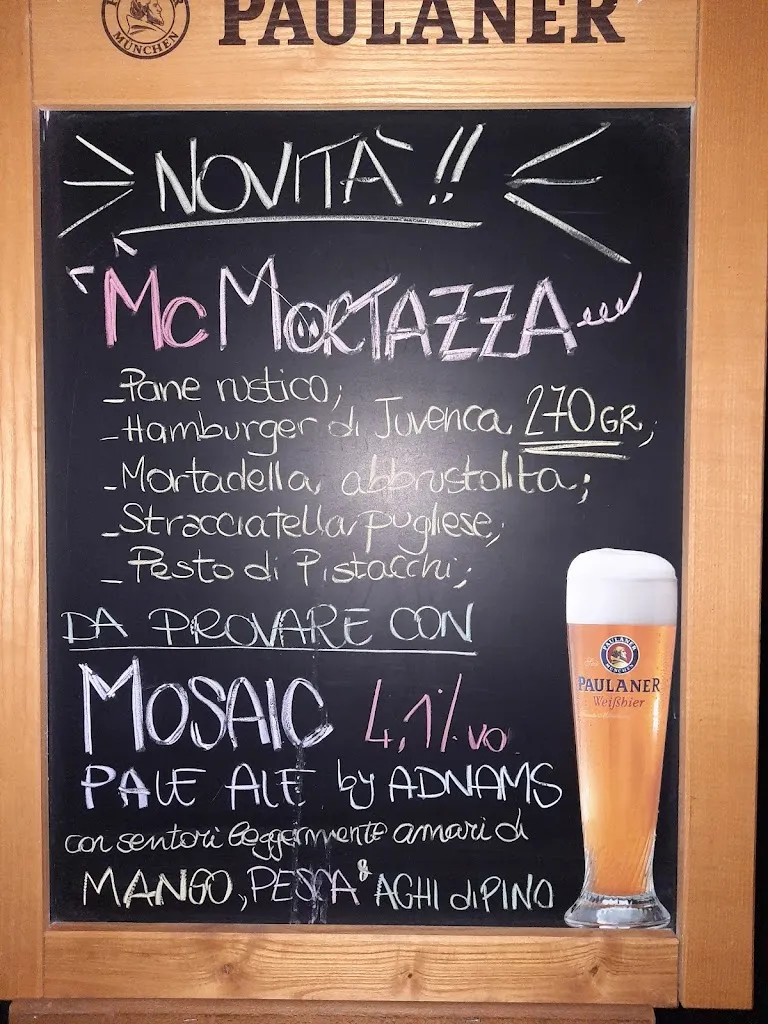 MÜNCHEN
PAULANER
NOVITÀ!!
"McMORTAZZA
-Pane rustico;
-Hamburger di Juvenca 270GR;
-Mortadella abbrustolita;
-Stracciatella pugliese;
-Pesto di Pistacchi;
DA PROVARE CON
MOSAIC 4,1% vo
PALE ALE by ADNAMS
con sentori leggermente amari di
MANGO, PESCA & AGHI di PINO
PAULANER
MÜNCHEN
PAULANER
Weißbier